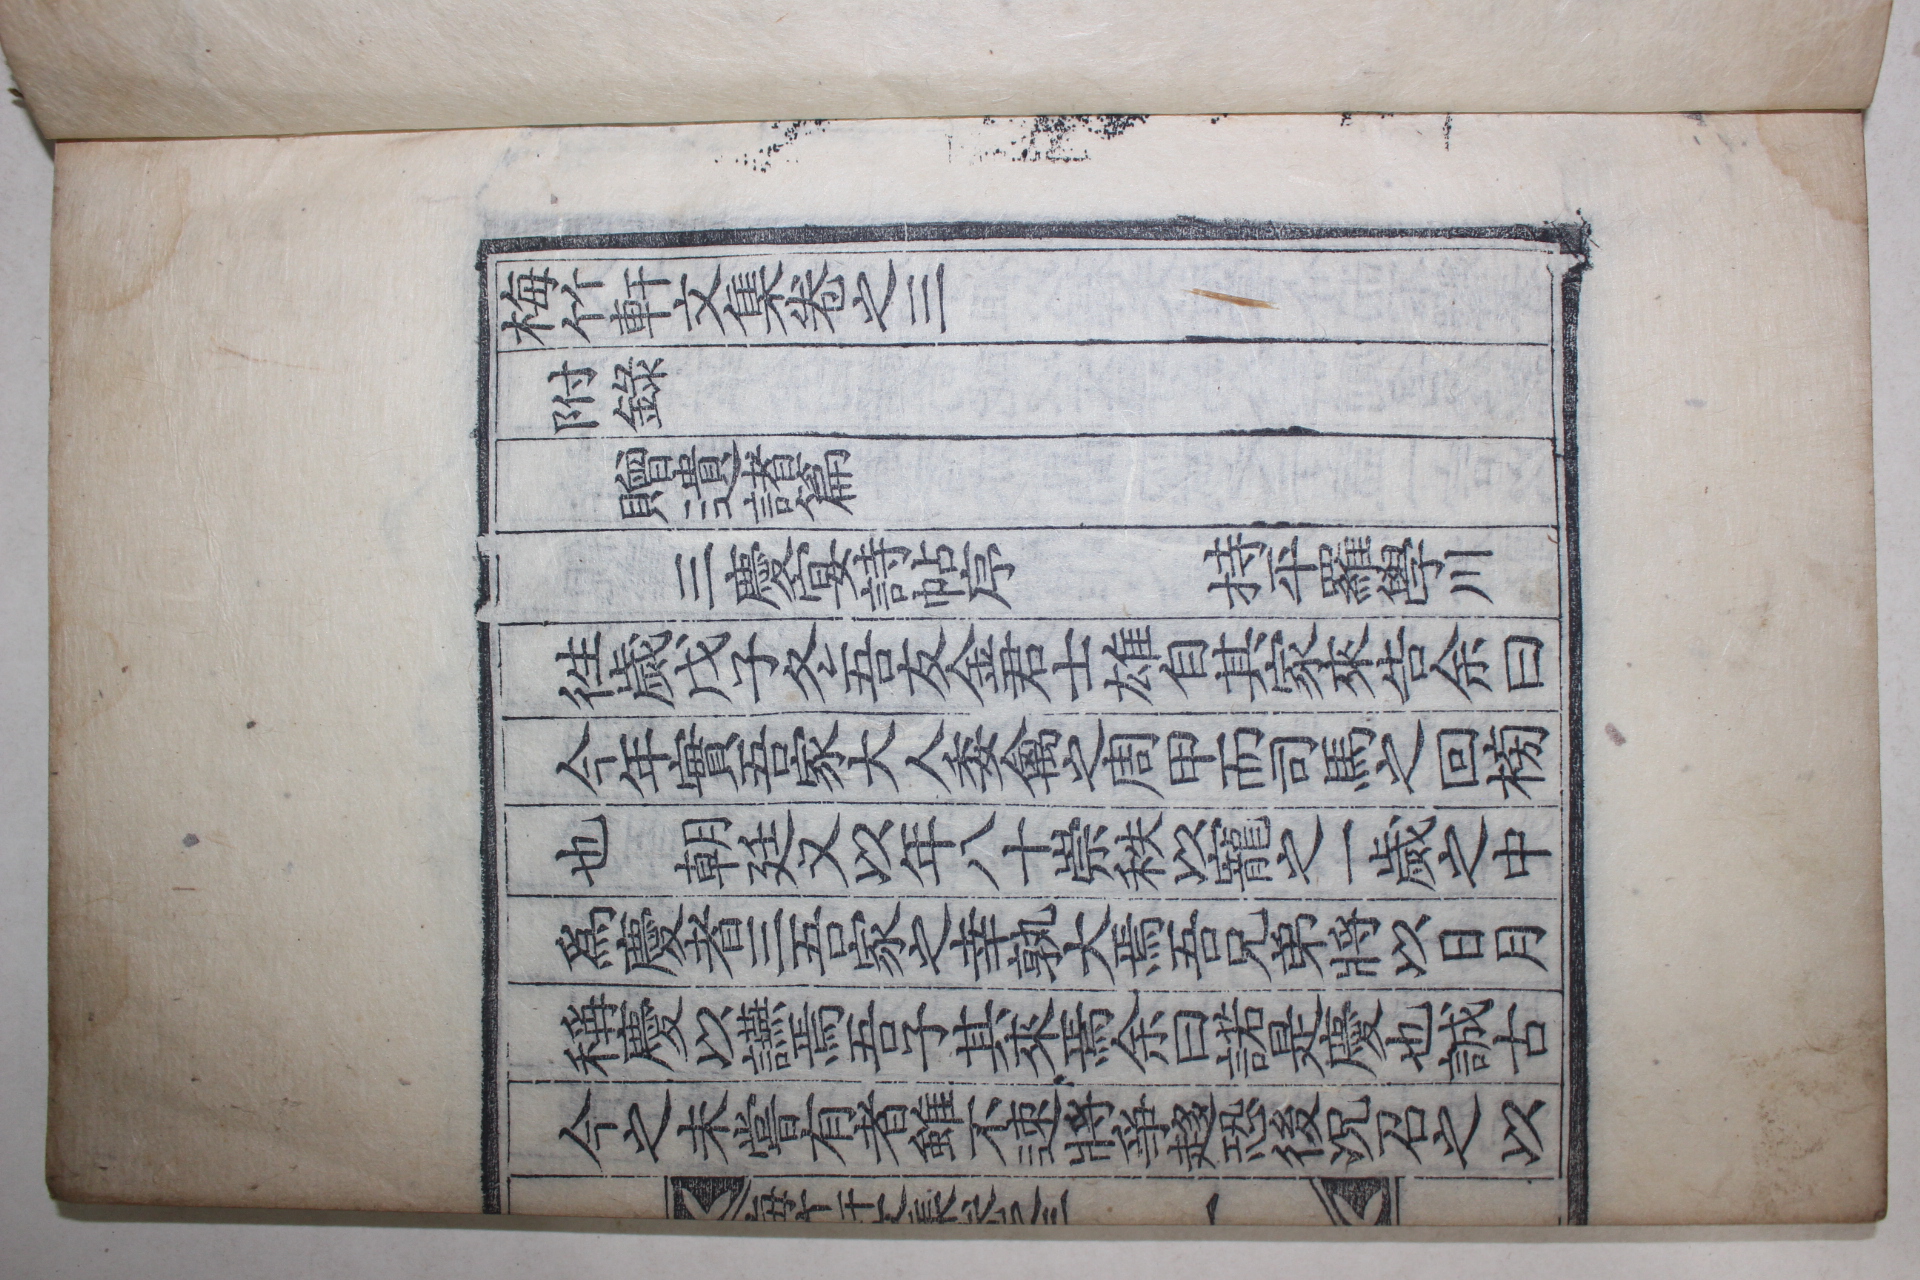 梅竹軒文集卷之三
附錄
贈遺諸篇
三慶宴詩帖序 持平羅學川
徃歲戊子冬吾友金君士雄自其家來告余曰
今年實吾家大人委禽之周甲而司馬之回榜
也 朝廷又以年八十崇秩以寵之一歲之中
爲慶者三吾家之幸孰大焉吾兄弟將以日月
稱慶以讌焉吾子其來焉余曰諾是慶也誠古
今之未嘗有者雖不速將爭趍恐後况召之以
梅竹軒文集卷之三 一